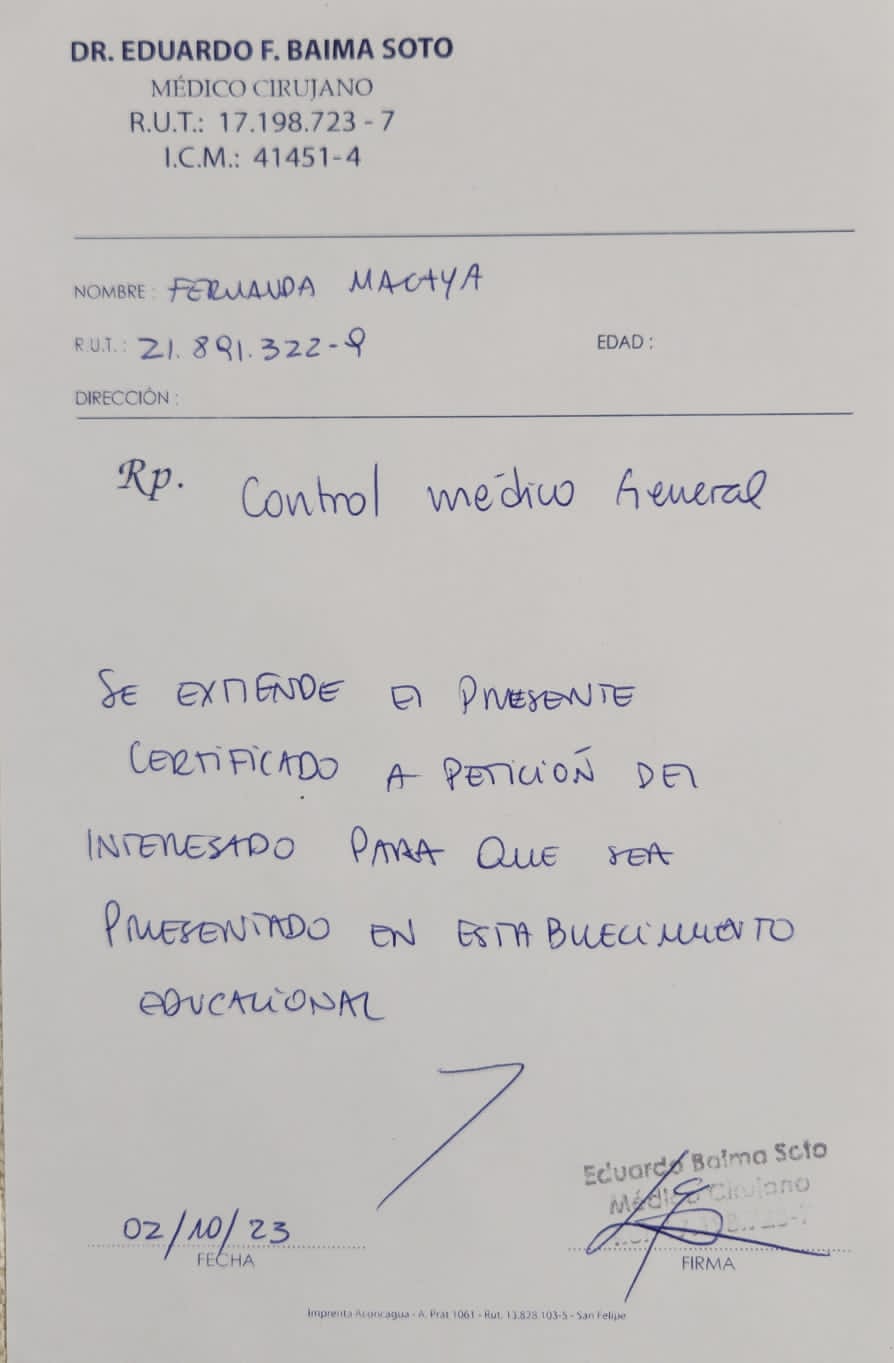 DR. EDUARDO F. BAIMA SOTO
MÉDICO CIRUJANO
R.U.T.: 17.198.723 - 7
I.C.M.: 41451-4
NOMBRE : FERNANDA MACAYA
R.U.T. : 21.891.322-9 EDAD :
DIRECCIÓN :
Rp. Control médico General
SE EXTIENDE El PRESENTE
CERTIFICADO A PETICIÓN DEl
INTERESADO PARA QUE SEA
PRESENTADO EN ESTABLECIMIENTO
EDUCACIONAL
Eduardo Baima Soto
Médico Cirujano
02/10/23
FECHA FIRMA
Imprenta Aconcagua - A. Prat 1061 - Rut. 13.828.103-5 - San Felipe